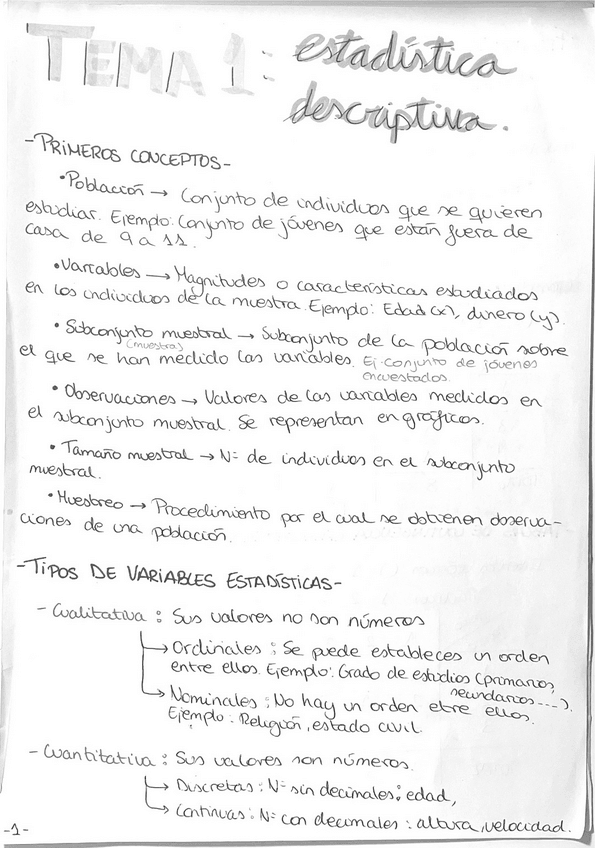 TEMA 1: estadística
descriptiva.
-PRIMEROS CONCEPTOS-
•Población → Conjunto de individuos que se quieren
estudiar. Ejemplo: Conjunto de jóvenes que están fuera de
casa de 9 a 11.
•Variables → Magnitudes o características estudiados
en los individuos de la muestra. Ejemplo: Edad (x), dinero (y).
• Subconjunto muestral → Subconjunto de la población sobre
(muestra)
el que se han medido las variables. Ej: Conjunto de jóvenes
encuestados.
• Observaciones → Valores de las variables medidos en
el subconjunto muestral. Se representan en gráficos.
• Tamaño muestral → Nº de individuos en el subconjunto
muestral.
•Muestreo → Procedimiento por el cual se obtienen observa-
ciones de una población.
-TIPOS DE VARIABLES ESTADÍSTICAS-
- Cualitativa : Sus valores no son números
→ Ordinales : Se puede estableces un orden
entre ellos. Ejemplo: Grado de estudios (primarios,
secundarios...).
→ Nominales : No hay un orden etre ellos.
Ejemplo: Religión, estado civil.
- Cuantitativa : Sus valores son números.
→ Discretas : Nº sin decimales: edad,
→ Continuas : Nº con decimales : altura, velocidad.
-1-